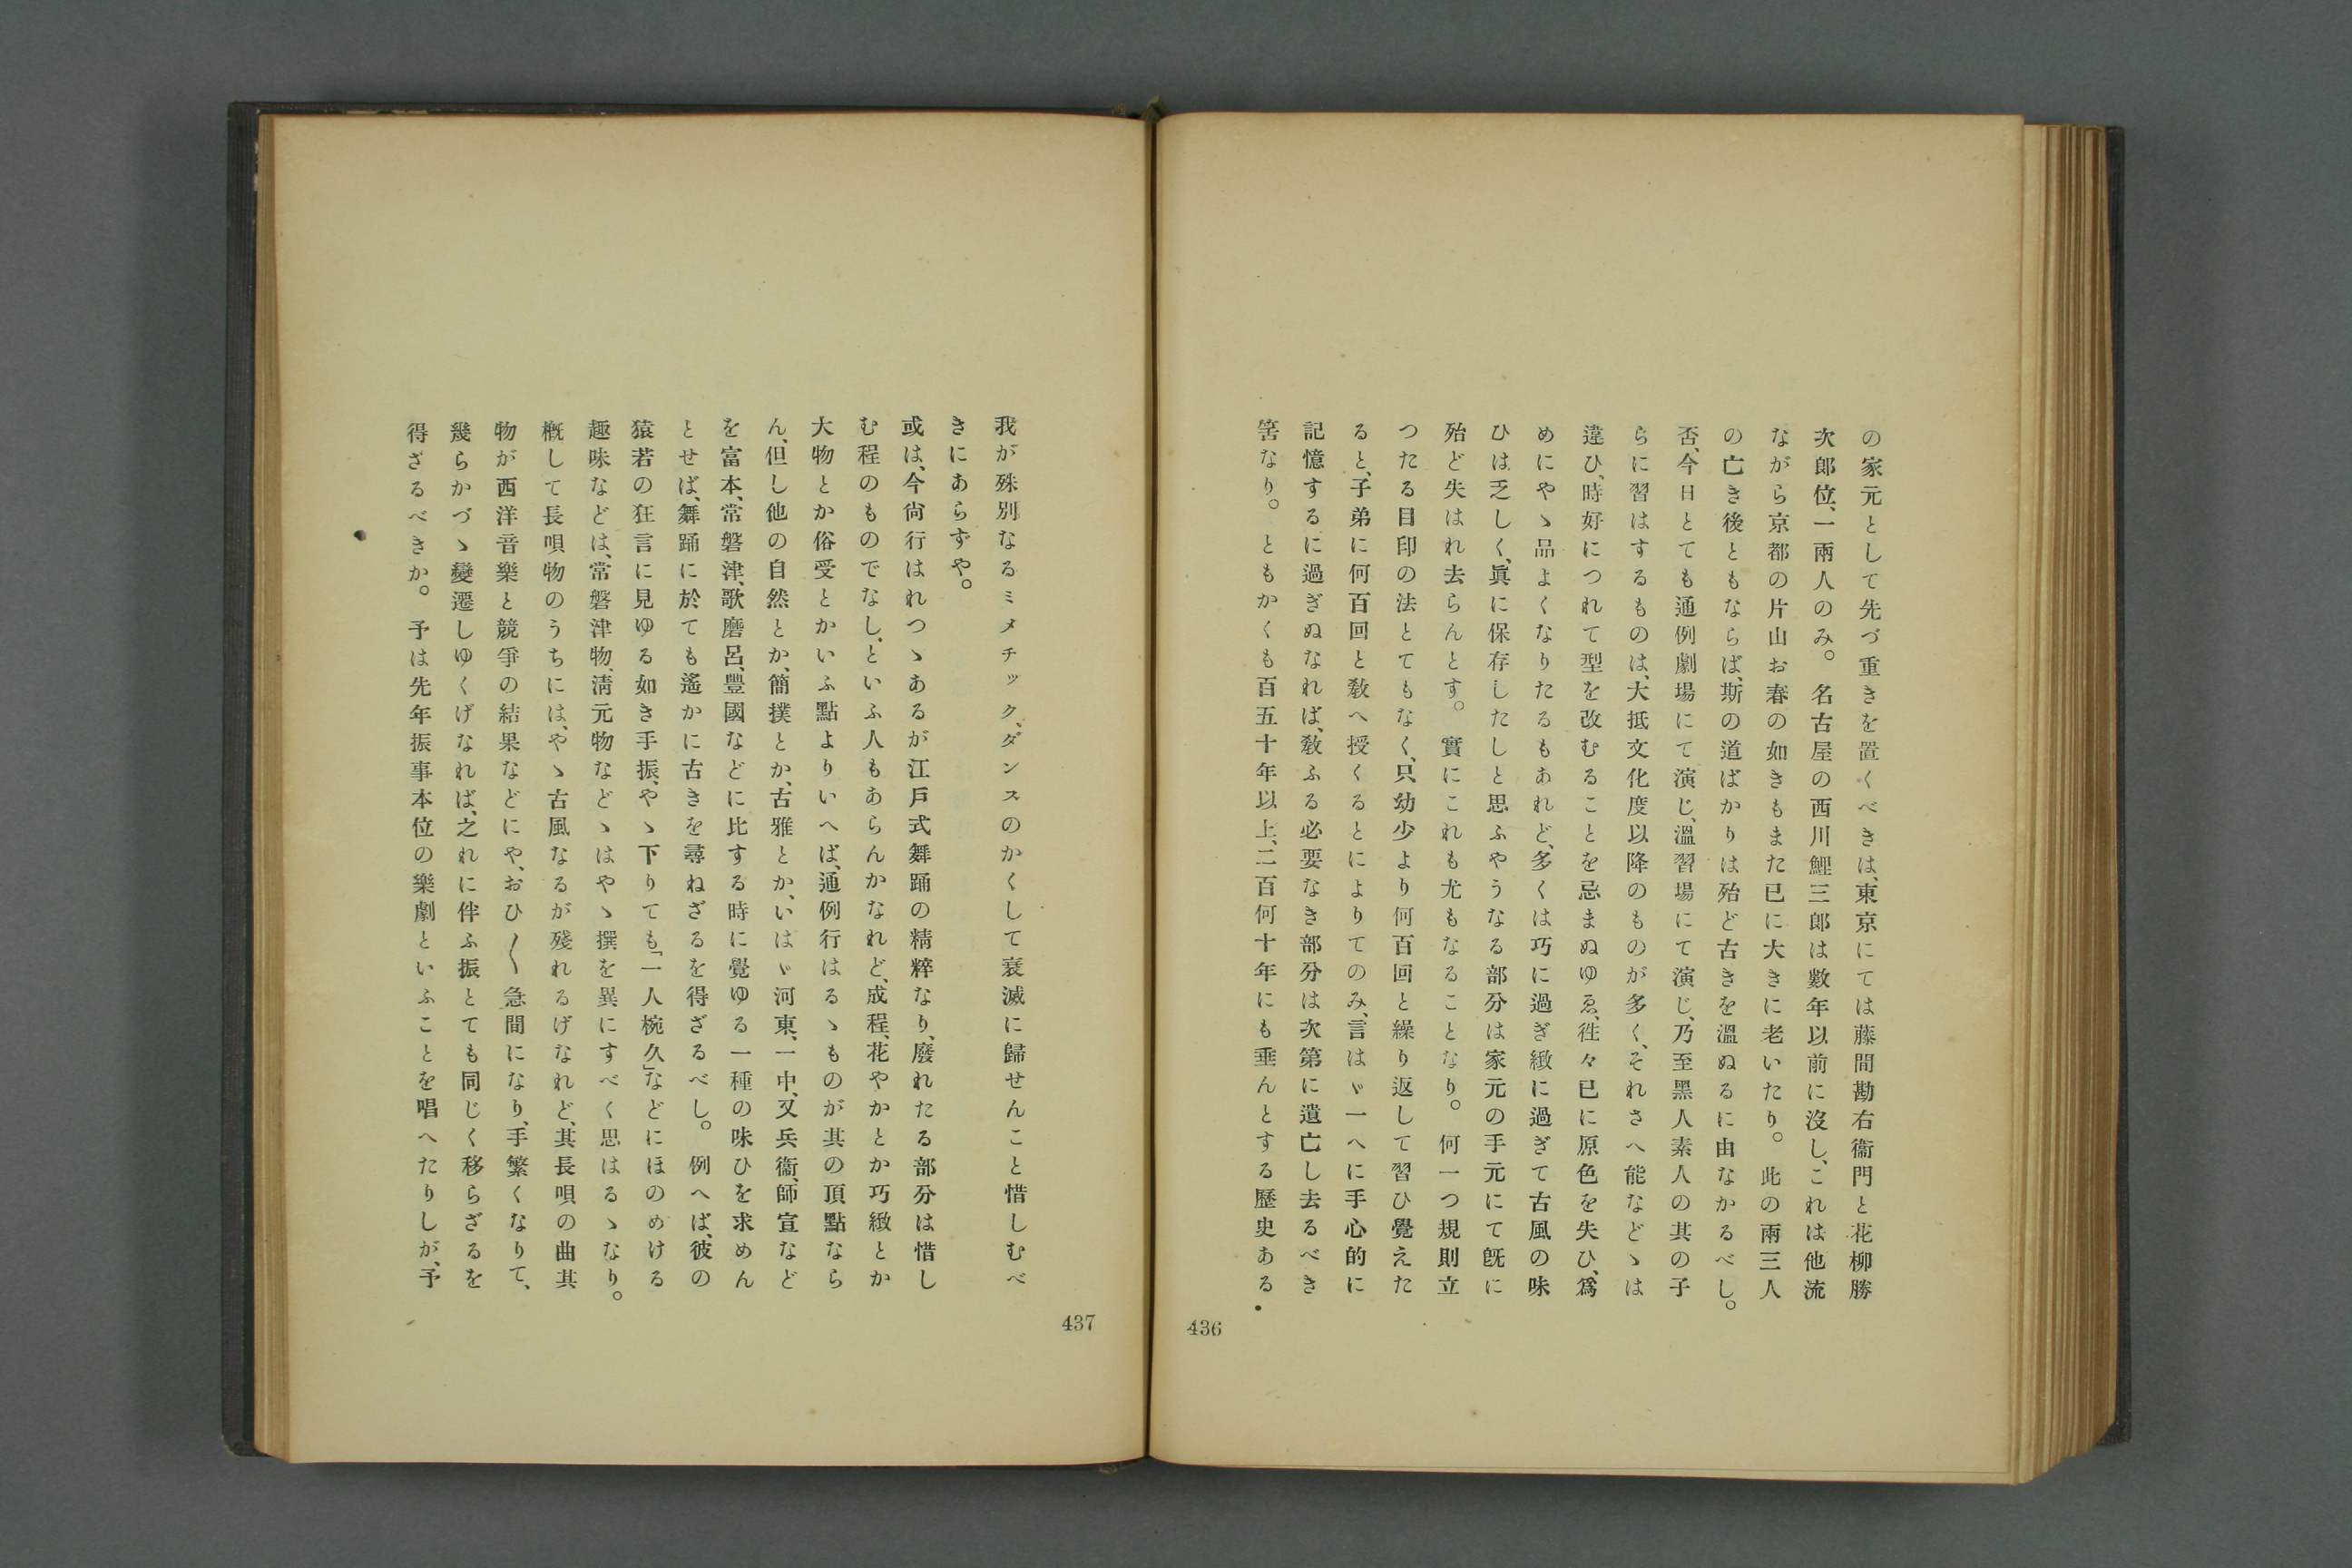 の家元として先づ重きを置くべきは、東京にては藤間勘右衞門と花柳勝
次郎位、一兩人のみ。名古屋の西川鯉三郎は數年以前に沒し、これは他流
ながら京都の片山お春の如きもまた已に大きに老いたり。此の兩三人
の亡き後ともならば、斯の道ばかりは殆ど古きを溫ぬるに由なかるべし。
否、今日とても通例劇場にて演じ、溫習場にて演じ、乃至黑人素人の其の子
らに習はするものは、大抵文化度以降のものが多く、それさへ能などゝは
違ひ、時好につれて型を改むることを忌まぬゆゑ、徃々已に原色を失ひ、爲
めにやゝ品よくなりたるもあれど、多くは巧に過ぎ緻に過ぎて古風の味
ひは乏しく、眞に保存したしと思ふやうなる部分は家元の手元にて旣に
殆ど失はれ去らんとす。實にこれも尤もなることなり。何一つ規則立
つたる目印の法とてもなく、只幼少より何百回と繰り返して習ひ覺えた
ると、子弟に何百回と敎へ授くるとによりてのみ、言はゞ一へに手心的に
記憶するに過ぎぬなれば、敎ふる必要なき部分は次第に遺亡し去るべき
筈なり。ともかくも百五十年以上、二百何十年にも垂んとする歷史ある
436
我が殊別なるミメチック、ダンスのかくして衰滅に歸せんこと惜しむべ
きにあらずや。
或は、今尙行はれつゝあるが江戶式舞踊の精粹なり、廢れたる部分は惜し
む程のものでなし、といふ人もあらんかなれど、成程、花やかとか巧緻とか
大物とか俗受とかいふ點よりいへば、通例行はるゝものが其の頂點なら
ん、但し他の自然とか、簡撲とか、古雅とか、いはゞ河東、一中、又兵衞、師宣など
を富本、常磐津、歌麿呂、豐國などに比する時に覺ゆる一種の味ひを求めん
とせば、舞踊に於ても遙かに古きを尋ねざるを得ざるべし。例へば、彼の
猿若の狂言に見ゆる如き手振、やゝ下りても「一人椀久」などにほのめける
趣味などは、常磐津物、淸元物などゝはやゝ撰を異にすべく思はるゝなり。
槪して長唄物のうちには、やゝ古風なるが殘れるげなれど、其長唄の曲其
物が西洋音樂と競爭の結果などにや、おひ〱急間になり、手繁くなりて、
幾らかづゝ變遷しゆくげなれば、之れに伴ふ振とても同じく移らざるを
得ざるべきか。予は先年振事本位の樂劇といふことを唱へたりしが、予
437